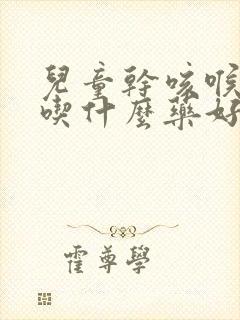 兒童幹咳喉
喫什麼藥好
霍尊學